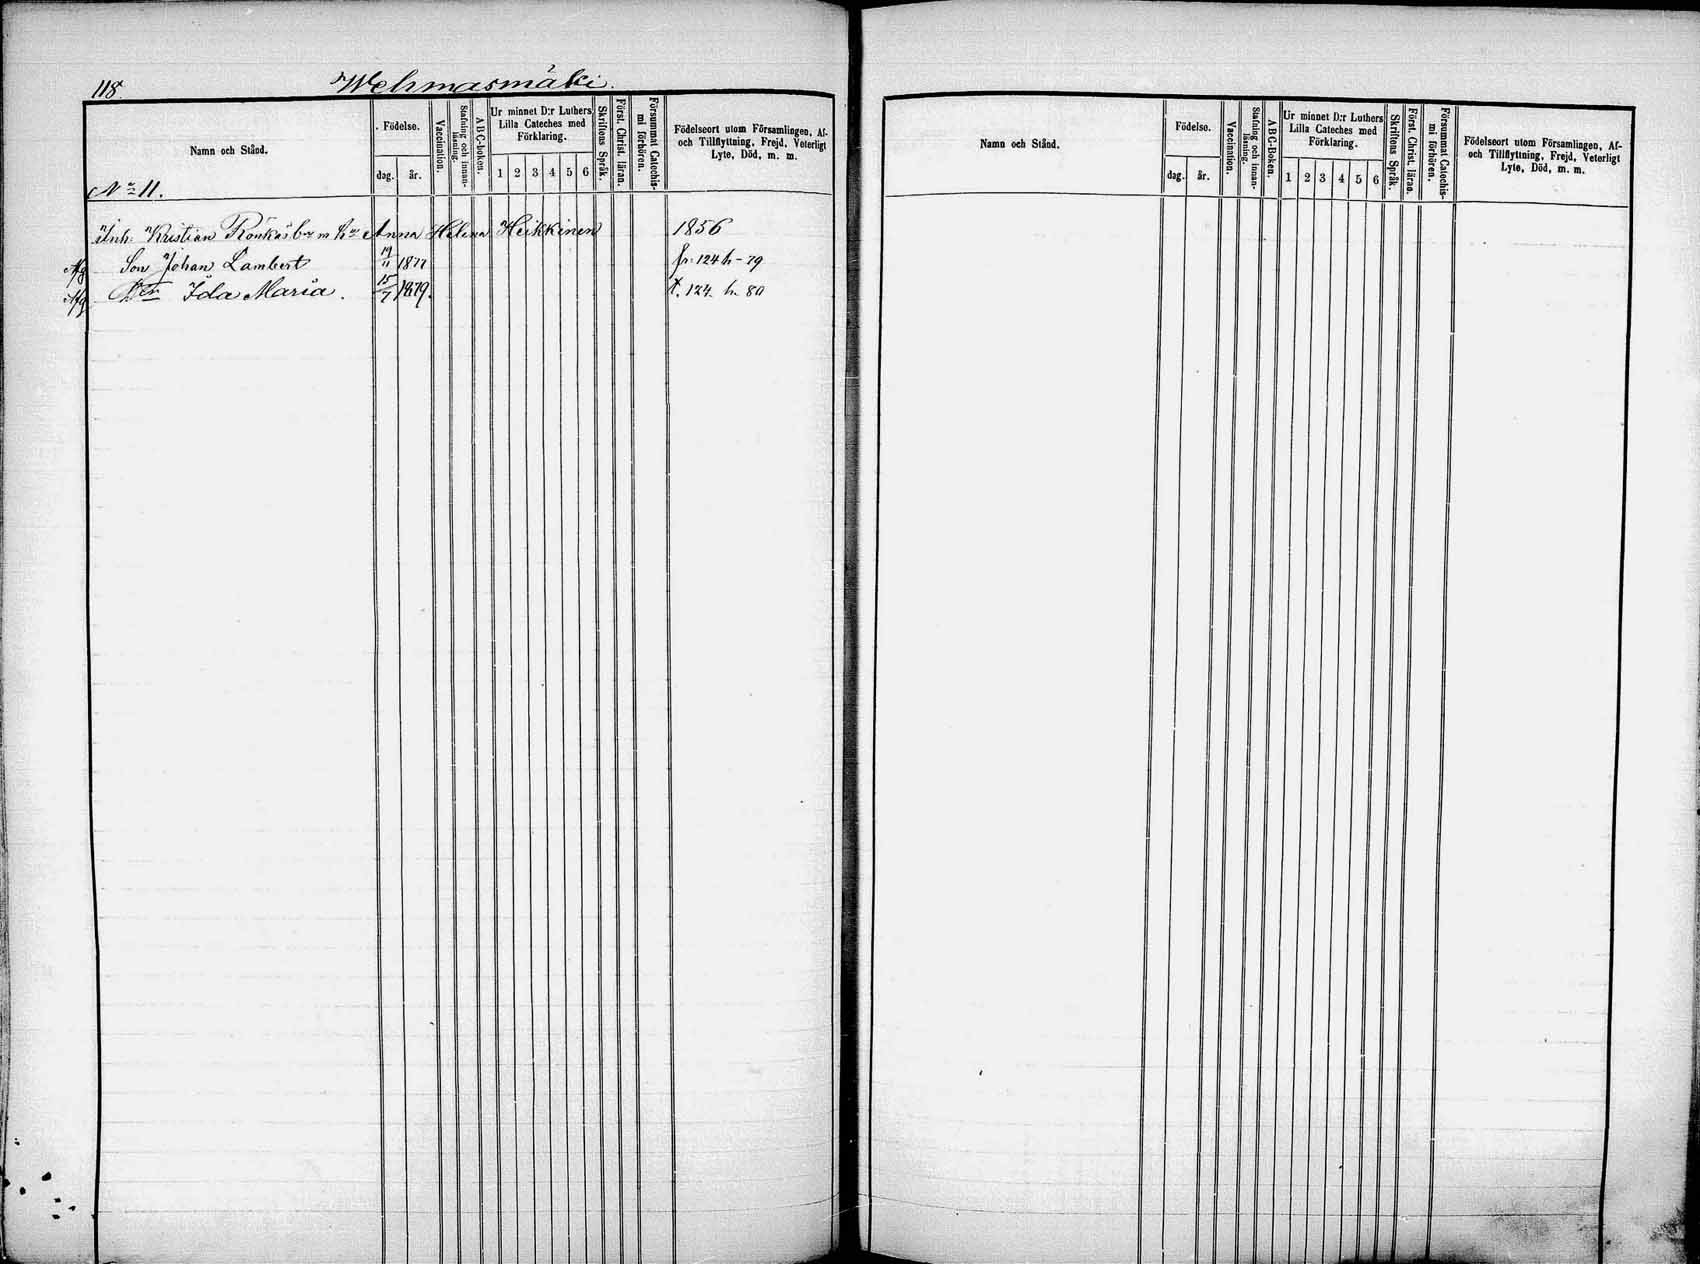 118.
Wehmasmäki.
Namn och Stånd.
Födelse.
dag. år.
Vaccination.
Stafning och innanläsning.
ABC-boken.
Ur minnet D:r Luthers Lilla Cateches med Förklaring.
1 2 3 4 5 6
Skriftens Språk.
Först. Christ. läran.
Försummat Catechismi förhören.
Födelseort utom Församlingen, Af-
och Tillflyttning, Frejd, Veterligt
Lyte, Död, m. m.
No 11.
Inh. Kristian Ronkas m hu Anna Helena Heikkinen 1856
Son Johan Lambert 19/11 1877 fr. 124 h - 79
Dtr Ida Maria. 15/7 1879. t. 124 h. 80
Namn och Stånd.
Födelse.
dag. år.
Vaccination.
Stafning och innanläsning.
ABC-Boken.
Ur minnet D:r Luthers
Lilla Cateches med
Förklaring.
1 2 3 4 5 6
Skriftens Språk.
Först. Christ. läran.
Försummat Catechismi förhören.
Födelseort utom Församlingen, Af-
och Tillflyttning, Frejd, Veterligt
Lyte, Död, m. m.